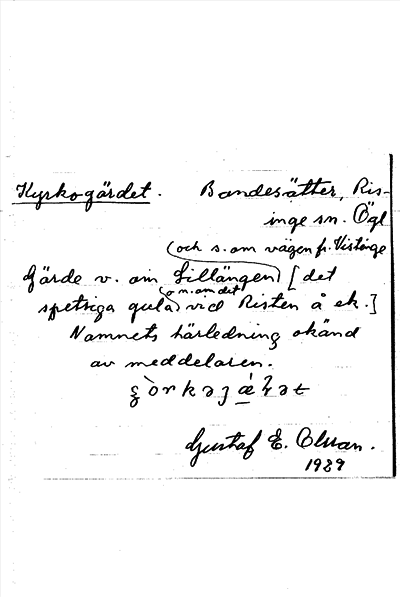 Kyrkogärdet. Bondesätter, Ris-
inge sn. Ögl
(och s. om vägen fr. Vistinge
Gärde v. om Lillängen) [det
(o n. om det
spetsiga gula) vid Risten å ek.]
Namnets härledning okänd
av meddelaren.
Gustaf E. Olsson.
1929